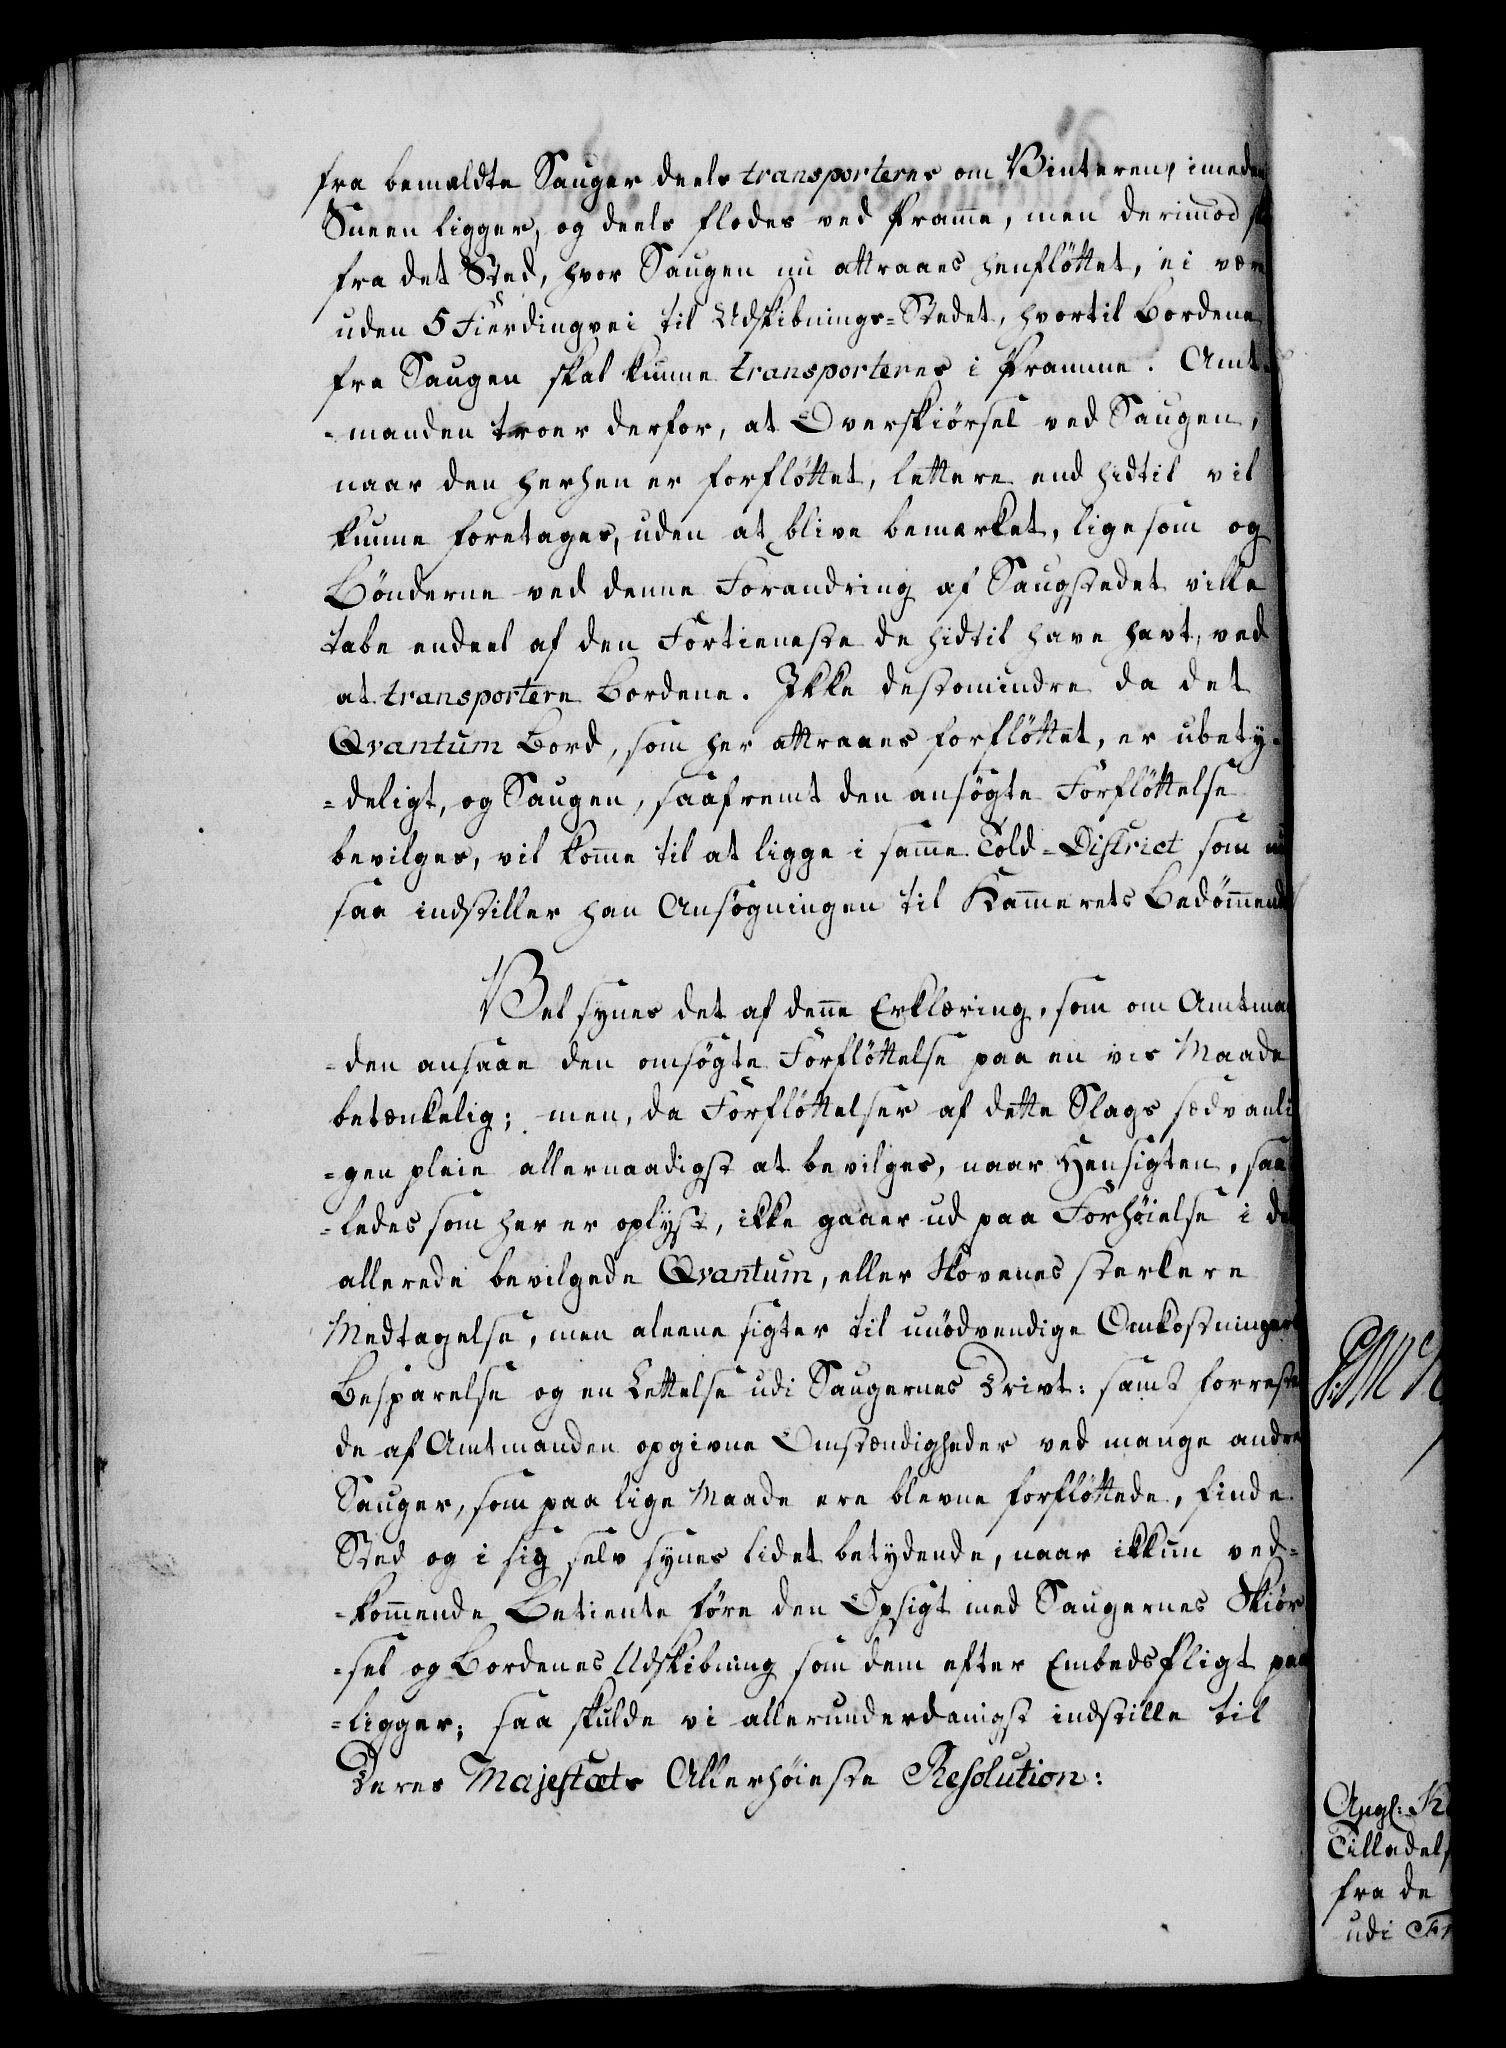 fra bemeldte Sauger deels transporteres om Vinteren, imeden
Sneen ligger, og deels flodes ved Pramme, men derimod
fra det Sted, hvor Saugen nu attraaes henfløttet, ei være
uden 5 Fierdingvei til Udskibnings-Stedet, hvortil Bordene
fra Saugen skal kunne transporteres i Pramme. Amt-
-manden troer derfor, at Overskiørsel ved Saugen,
naar den herhen er forfløttet, lettere end hidtil vil
kunne foretages, uden at blive bemærket, ligesom og
Bønderne ved denne Forandring af Saugstedet ville
tabe endeel af den Fortieneste de hidtil have havt, ved
at transportere Bordene. Ikke destomindre da det
Qvantum Bord, som her attraaes forfløttet, er ubety-
-deligt, og Saugen, saafremt den ansøgte Forfløttelse
bevilges, vil komme til at ligge i samme Told-District som nu
saa indstiller han Ansøgningen til Kammerets Bedømmende
Vel synes det af denne Erklæring, som om Amtman
-den ansaae den omsøgte Forfløttelse paa en vis Maade
betænkelig; men, da Forfløttelser af dette Slags sædvanli
-gen pleie allernaadigst at bevilges, naar Hensigten, saa
-ledes som her er oplyst, ikke gaaer ud paa Forhøielse i det
allerede bevilgede Qvantum, eller Skovenes sterkere
Medtagelse, men aleene sigter til unødvendige Omkostningers
Besparelse og en Lettelse udi Saugernes Drivt: samt forresten
de af Amtmanden opgivne Omstændigheder ved mange andre
Sauger, som paa lige Maade ere blevne forfløttede, finde
Sted og i sig selv synes lidet betydende, naar ikkun ved-
-kommende Betiente føre den Opsigt med Saugernes Skiør
-sel og Bordenes Udskibning som dem efter Embedspligt paa
-ligger; saa skulde vi allerunderdanigst indstille til
Deres Majestæts Allerhøieste Resolution:
Tilladels
fra de
udi